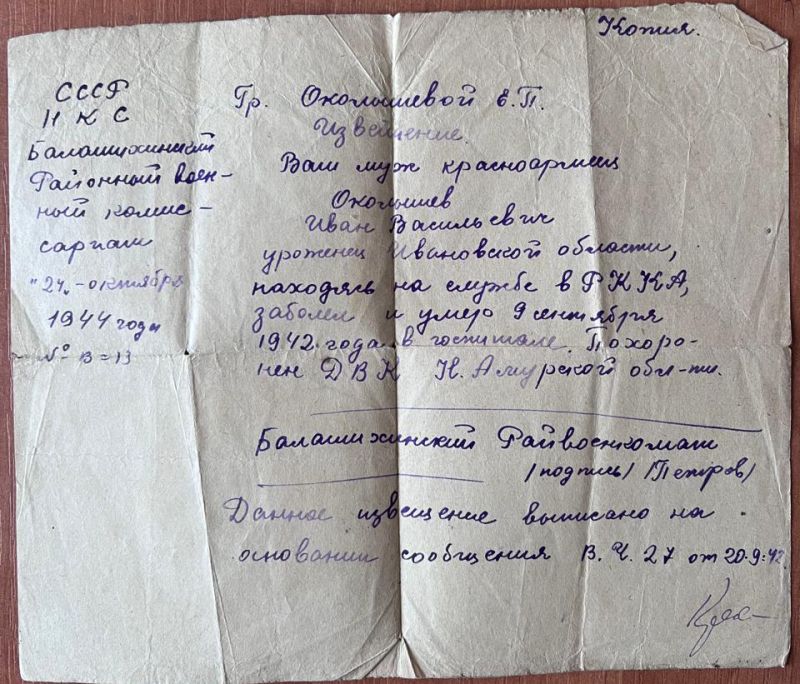 Копия.
СССР
Н К С
Балашихинский
Районный воен-
ный комис-
сариат
"24"-октября
1944 года
№ В=13
Гр. Околышевой Е.П.
Извещение
Ваш муж красноармеец
Околышев
Иван Васильевич
уроженец Ивановской области,
находясь на службе в РККА,
заболел и умер 9 сентября
1942 года в госпитале. Похоро-
нен ДВК Н. Амурской обл-ти.
Балашихинский Райвоенкомат
/подпись/ /Петров/
Данное извещение выписано на
основании сообщения В.Ч. 27 от 20.9.42